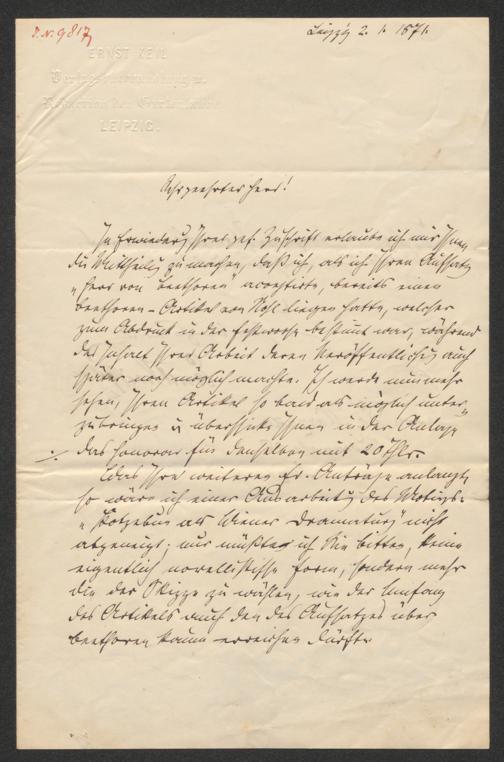 I.N. 9817
Leipzig 2. 1. 1871.
ERNST KEIL
Verlagsbuchhandlung u.
Redaction der Gartenlaube
LEIPZIG.
Sehr geehrter Herr!
In Erwiederg Ihrer gef. Zuschrift erlaube ich mir Ihnen
die Mittheilg zu machen, daß ich, als ich Ihren Aufsatz
"Herr von Beethoven" acceptirte, bereits einen
Beethoven-Artikel von Nohl liegen hatte, welcher
zum Abdruck in der Festwoche bestimt war, während
der Inhalt Ihrer Arbeit deren Veröffentlichg auch
später noch möglich machte. Ich werde nunmehr
sehen, Ihren Artikel so bald als möglich unter-
zubringen u übersende Ihnen in der Anlage
das Honorar für denselben mit 20 Thlr.
Was Ihre weiteren Anträge anlangt,
so wäre ich einer Ausarbeitg des Motivs:
"Kotzebue als Wiener Dramaturg" nicht
abgeneigt; nur müßte ich Sie bitten, keine
eigentlich novellistische Form, sondern mehr
die der Skizze zu wählen, wie der Umfang
des Artikels auch den des Aufsatzes über
Beethoven kaum erreichen dürfte.